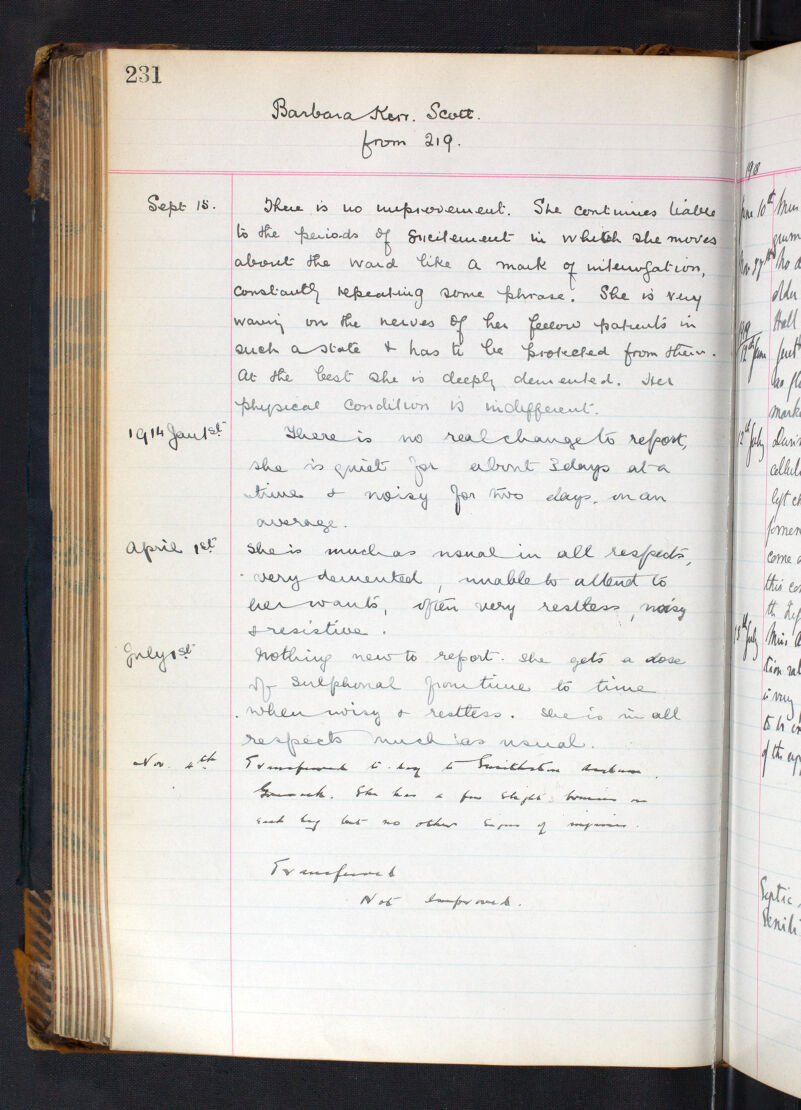 231
Barbara Kerr. Scott.
from 219.
Sept 15. There is no improvement. She continues liable
to the periods of Excitement in which she moves
about the ward like a mark of interrogation,
constantly repeating some phrase. She is very
waring on the nerves of her fellow patients in
such a state & has to be protected from them.
At the best she is deeply demented. Her
physical condition is indifferent.
1914 Jan 1st There is no real change to report,
she is quiet for about 3 days at a
time & noisy for two days, on an
average.
April 1st She is much as usual in all respects,
very demented, unable to attend to
her wants, often very restless, noisy
& resistive.
July 1st Nothing new to report. She gets a dose
of Sulphonal from time to time
when noisy & restless. She is in all
respects much as usual.
Nov. 4th Transferred to-day to Smithston Asylum
Greenock. She has a few slight bruises on
each leg but no other signs of injuries.
Transferred
Not Improved.
1918
June 10th
12th July
Miss
Septic
Senili